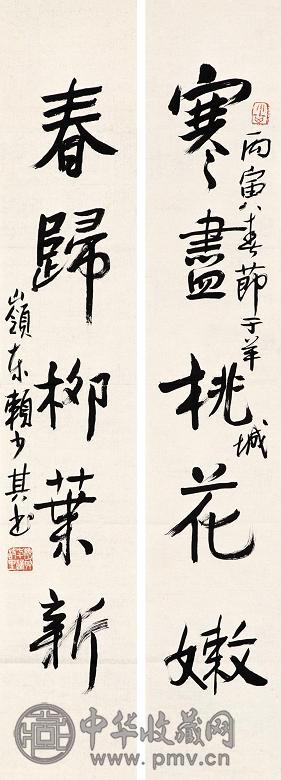 寒盡桃花嫩
丙寅春節于羊城
春歸柳葉新
嶺東賴少其書
中华收藏网
www.pmv.cn